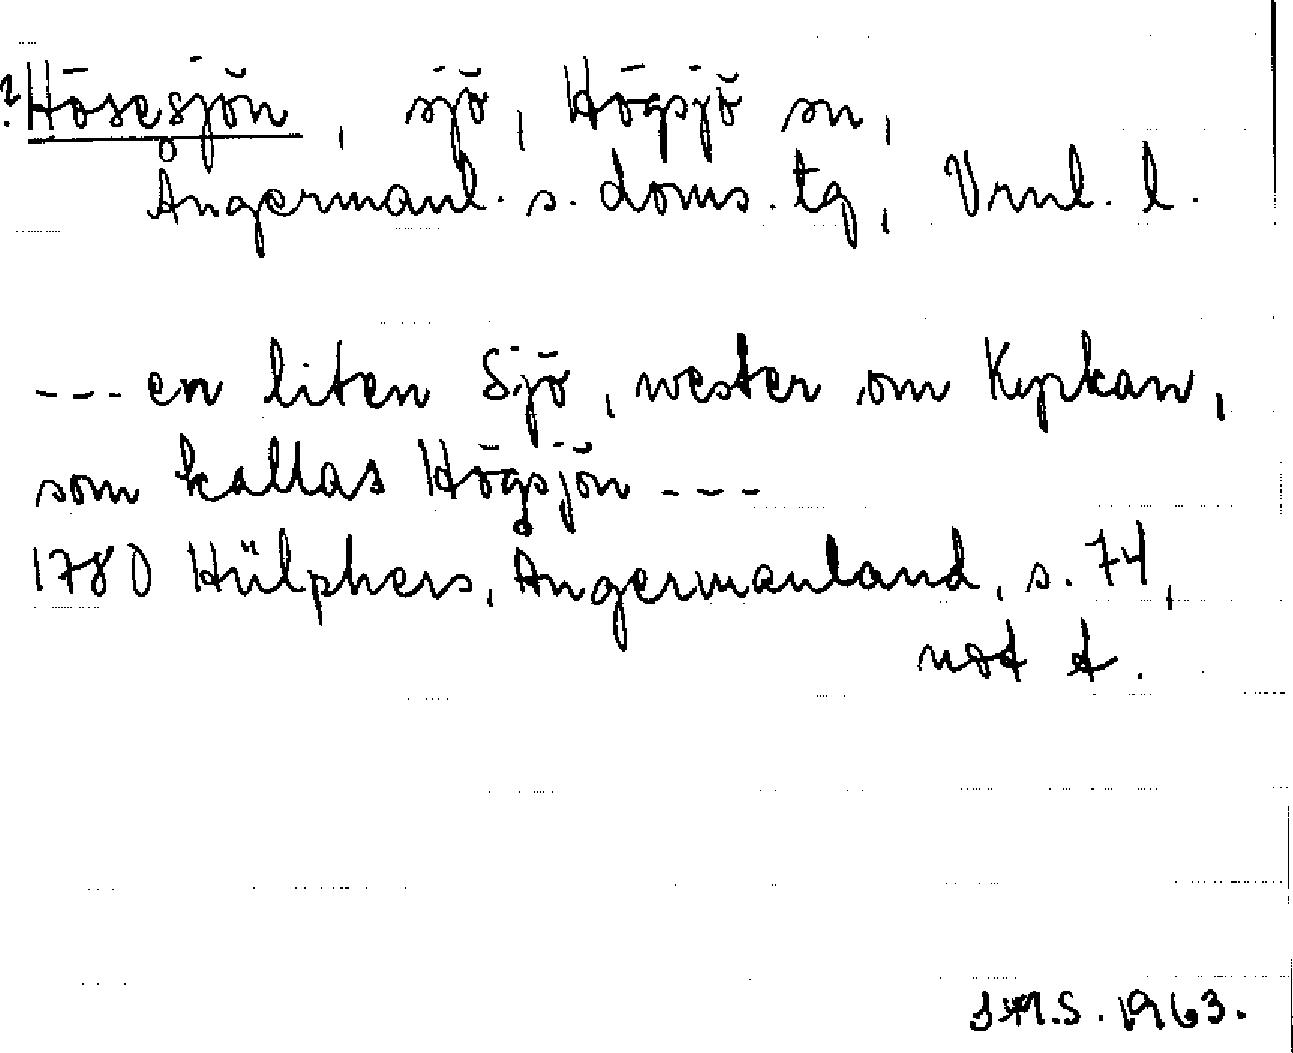 ? Hösesjön, sjö, Högsjö sn,
Ångermanl. s. doms. tg, Vrnl. l.
--- en liten Sjö, wester om Kyrkan,
som kallas Högsjön ---
1780 Hülphers, Ångermanland, s. 74,
not t.
S.M.S. 1963.